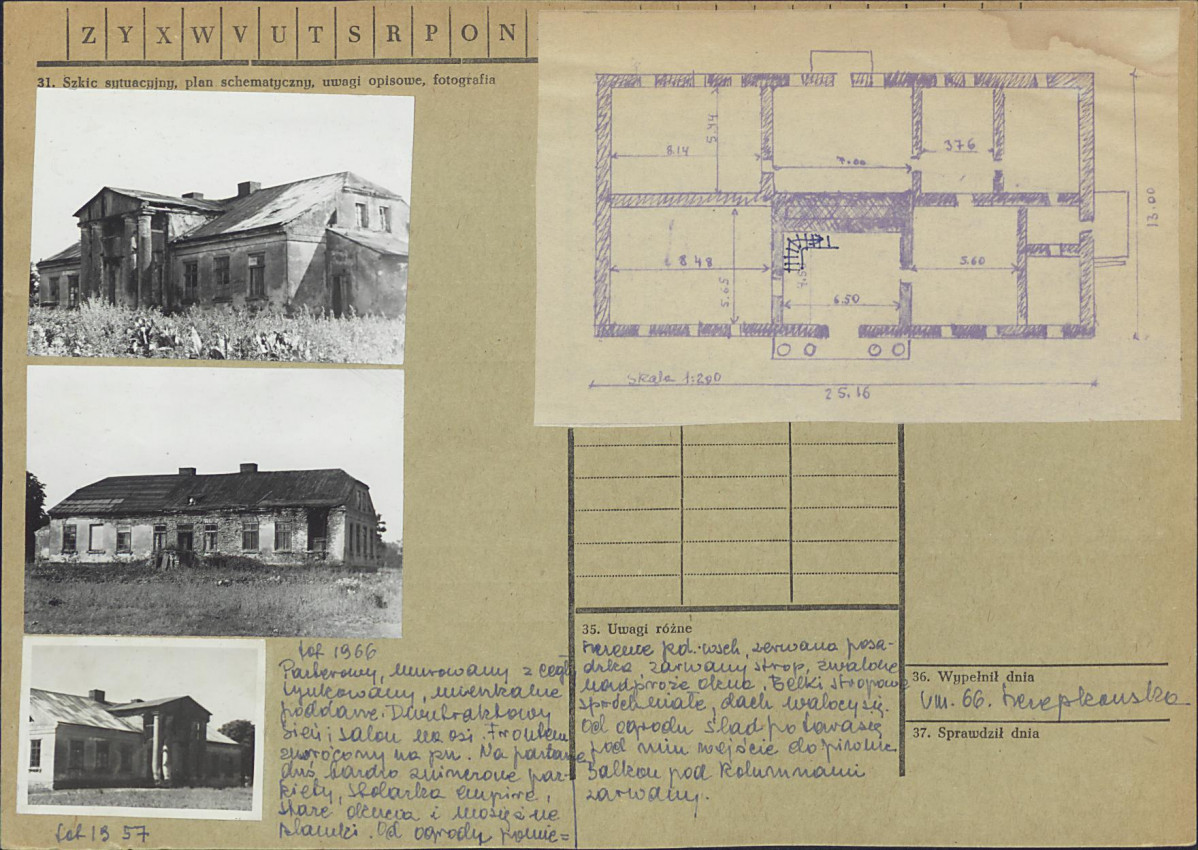 Z Y X W V U T S R P O N
31. Szkic sytuacyjny, plan schematyczny, uwagi opisowe, fotografia
8.14
5.44
7.00
376
13.00
8.48
5.65
6.50
5.60
Skala 1:200
25.16
fot 1966
Parterowy, murowany z cegły
tynkowany, mieszkalne
poddasze. Dwutraktowy
sień i salon na osi. Frontem
zwrócony na pn. Na parterze
dziś bardzo zniszczone par-
kiety, stolarka empire,
stare okucia i mosiężne
klamki. Od ogrodu pomie=
fot 19 57
35. Uwagi różne
pd.-wsch, zerwana posa-
dzka, zarwany strop, zwalone
nadproże okna. Belki stropowe
spróchniałe, dach walący się.
Od ogrodu ślad po tarasie
pod nim wejście do piwnic
Balkon pod kolumnami
zarwany.
36. Wypełnił dnia
VIII. 66.
37. Sprawdził dnia